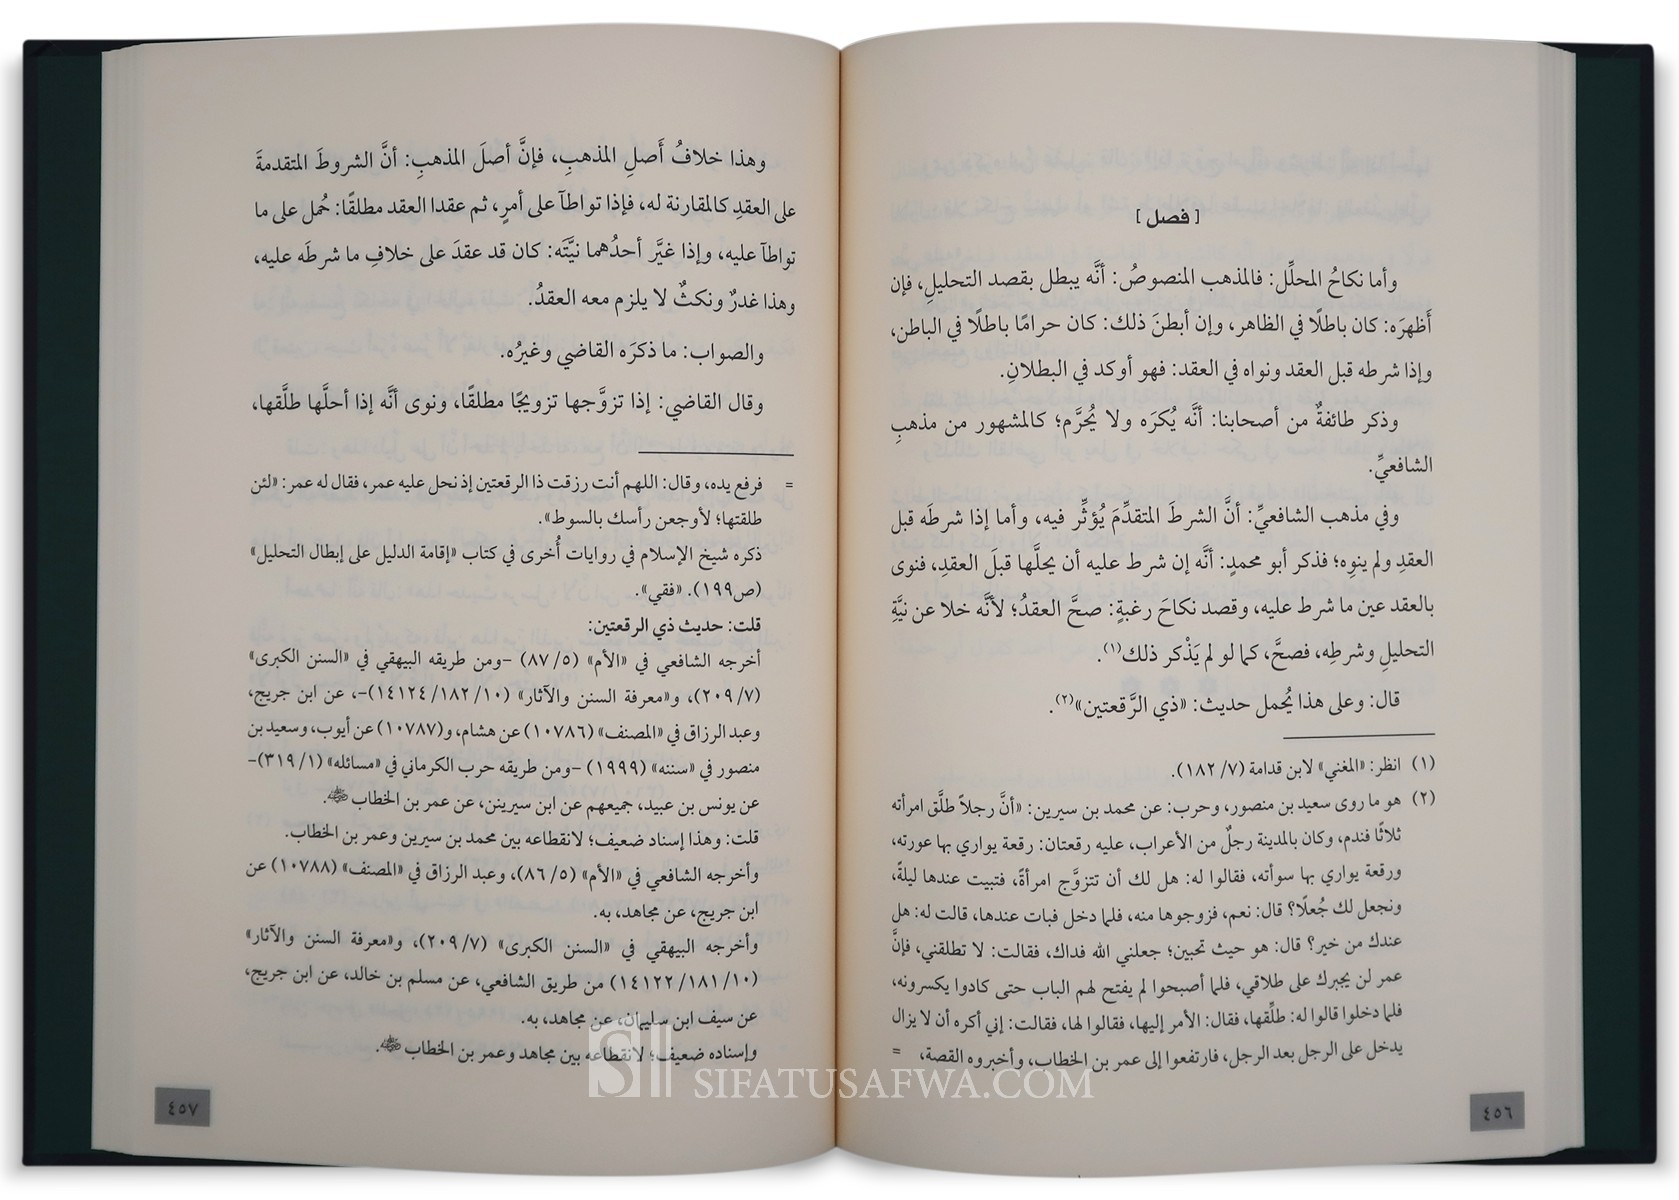 [ فصل ]
وأما نكاحُ المحلِّل: فالمذهب المنصوصُ: أنَّه يبطل بقصد التحليلِ، فإن
أظهرَه: كان باطلًا في الظاهر، وإن أبطنَ ذلك: كان حرامًا باطلًا في الباطن،
وإذا شرطه قبل العقد ونواه في العقد: فهو أوكد في البطلانِ.
وذكر طائفةٌ من أصحابنا: أنَّه يُكرَه ولا يُحرَّم؛ كالمشهور من مذهبِ
الشافعيِّ.
وفي مذهب الشافعيِّ: أنَّ الشرطَ المتقدِّمَ يُؤثِّر فيه، وأما إذا شرطَه قبل
العقدِ ولم ينوِه؛ فذكر أبو محمدٍ: أنَّه إن شرط عليه أن يحلَّها قبلَ العقدِ، فنوى
بالعقد عين ما شرط عليه، وقصد نكاحَ رغبةٍ: صحَّ العقدُ؛ لأنَّه خلا عن نيَّةِ
التحليلِ وشرطِه، فصحَّ، كما لو لم يَذْكر ذلك(١).
قال: وعلى هذا يُحمل حديث: «ذي الرَّقعتين»(٢).
(١) انظر: «المغني» لابن قدامة (٧/ ١٨٢).
(٢) هو ما روى سعيد بن منصور، وحرب: عن محمد بن سيرين: «أنَّ رجلاً طلَّق امرأته
ثلاثًا فندم، وكان بالمدينة رجلٌ من الأعراب، عليه رقعتان: رقعة يواري بها عورته،
ورقعة يواري بها سوأته، فقالوا له: هل لك أن تتزوَّج امرأةً، فتبيت عندها ليلةً،
ونجعل لك جُعلًا؟ قال: نعم، فزوجوها منه، فلما دخل فبات عندها، قالت له: هل
عندك من خير؟ قال: هو حيث تحبين؛ جعلني الله فداك، فقالت: لا تطلقني، فإنَّ
عمر لن يجبرك على طلاقي، فلما أصبحوا لم يفتح لهم الباب حتى كادوا يكسرونه،
فلما دخلوا قالوا له: طلِّقها، فقال: الأمر إليها، فقالوا لها، فقالت: إني أكره أن لا يزال
يدخل على الرجل بعد الرجل، فارتفعوا إلى عمر بن الخطاب، وأخبروه القصة، =
٤٥٦
وهذا خلافُ أَصلِ المذهبِ، فإنَّ أصلَ المذهبِ: أنَّ الشروطَ المتقدمةَ
على العقدِ كالمقارنة له، فإذا تواطآ على أمرٍ، ثم عقدا العقد مطلقًا: حُمل على ما
تواطآ عليه، وإذا غيَّر أحدُهما نيَّتَه: كان قد عقدَ على خلافِ ما شرطَه عليه،
وهذا غدرٌ ونكثٌ لا يلزم معه العقدُ.
والصواب: ما ذكرَه القاضي وغيرُه.
وقال القاضي: إذا تزوَّجها تزويجًا مطلقًا، ونوى أنَّه إذا أحلَّها طلَّقها،
= فرفع يده، وقال: اللهم أنت رزقت ذا الرقعتين إذ نحل عليه عمر، فقال له عمر: «لئن
طلقتها؛ لأوجعن رأسك بالسوط».
ذكره شيخ الإسلام في روايات أُخرى في كتاب «إقامة الدليل على إبطال التحليل»
(ص١٩٩). «فقي».
قلت: حديث ذي الرقعتين:
أخرجه الشافعي في «الأم» (٥/ ٨٧) -ومن طريقه البيهقي في «السنن الكبرى»
(٧/ ٢٠٩)، و«معرفة السنن والآثار» (١٠/ ١٨٢/ ١٤١٢٤)-، عن ابن جريج،
وعبد الرزاق في «المصنف» (١٠٧٨٦) عن هشام، و(١٠٧٨٧) عن أيوب، وسعيد بن
منصور في «سننه» (١٩٩٩) -ومن طريقه حرب الكرماني في «مسائله» (١/ ٣١٩)-
عن يونس بن عبيد، جميعهم عن ابن سيرين، عن عمر بن الخطاب ﵁.
قلت: وهذا إسناد ضعيف؛ لانقطاعه بين محمد بن سيرين وعمر بن الخطاب.
وأخرجه الشافعي في «الأم» (٥/ ٨٦)، وعبد الرزاق في «المصنف» (١٠٧٨٨) عن
ابن جريج، عن مجاهد، به.
وأخرجه البيهقي في «السنن الكبرى» (٧/ ٢٠٩)، و«معرفة السنن والآثار»
(١٠/ ١٨١/ ١٤١٢٢) من طريق الشافعي، عن مسلم بن خالد، عن ابن جريج،
عن سيف ابن سليمان، عن مجاهد، به.
وإسناده ضعيف؛ لانقطاعه بين مجاهد وعمر بن الخطاب ﵁.
٤٥٧
SIFATUSAFWA.COM